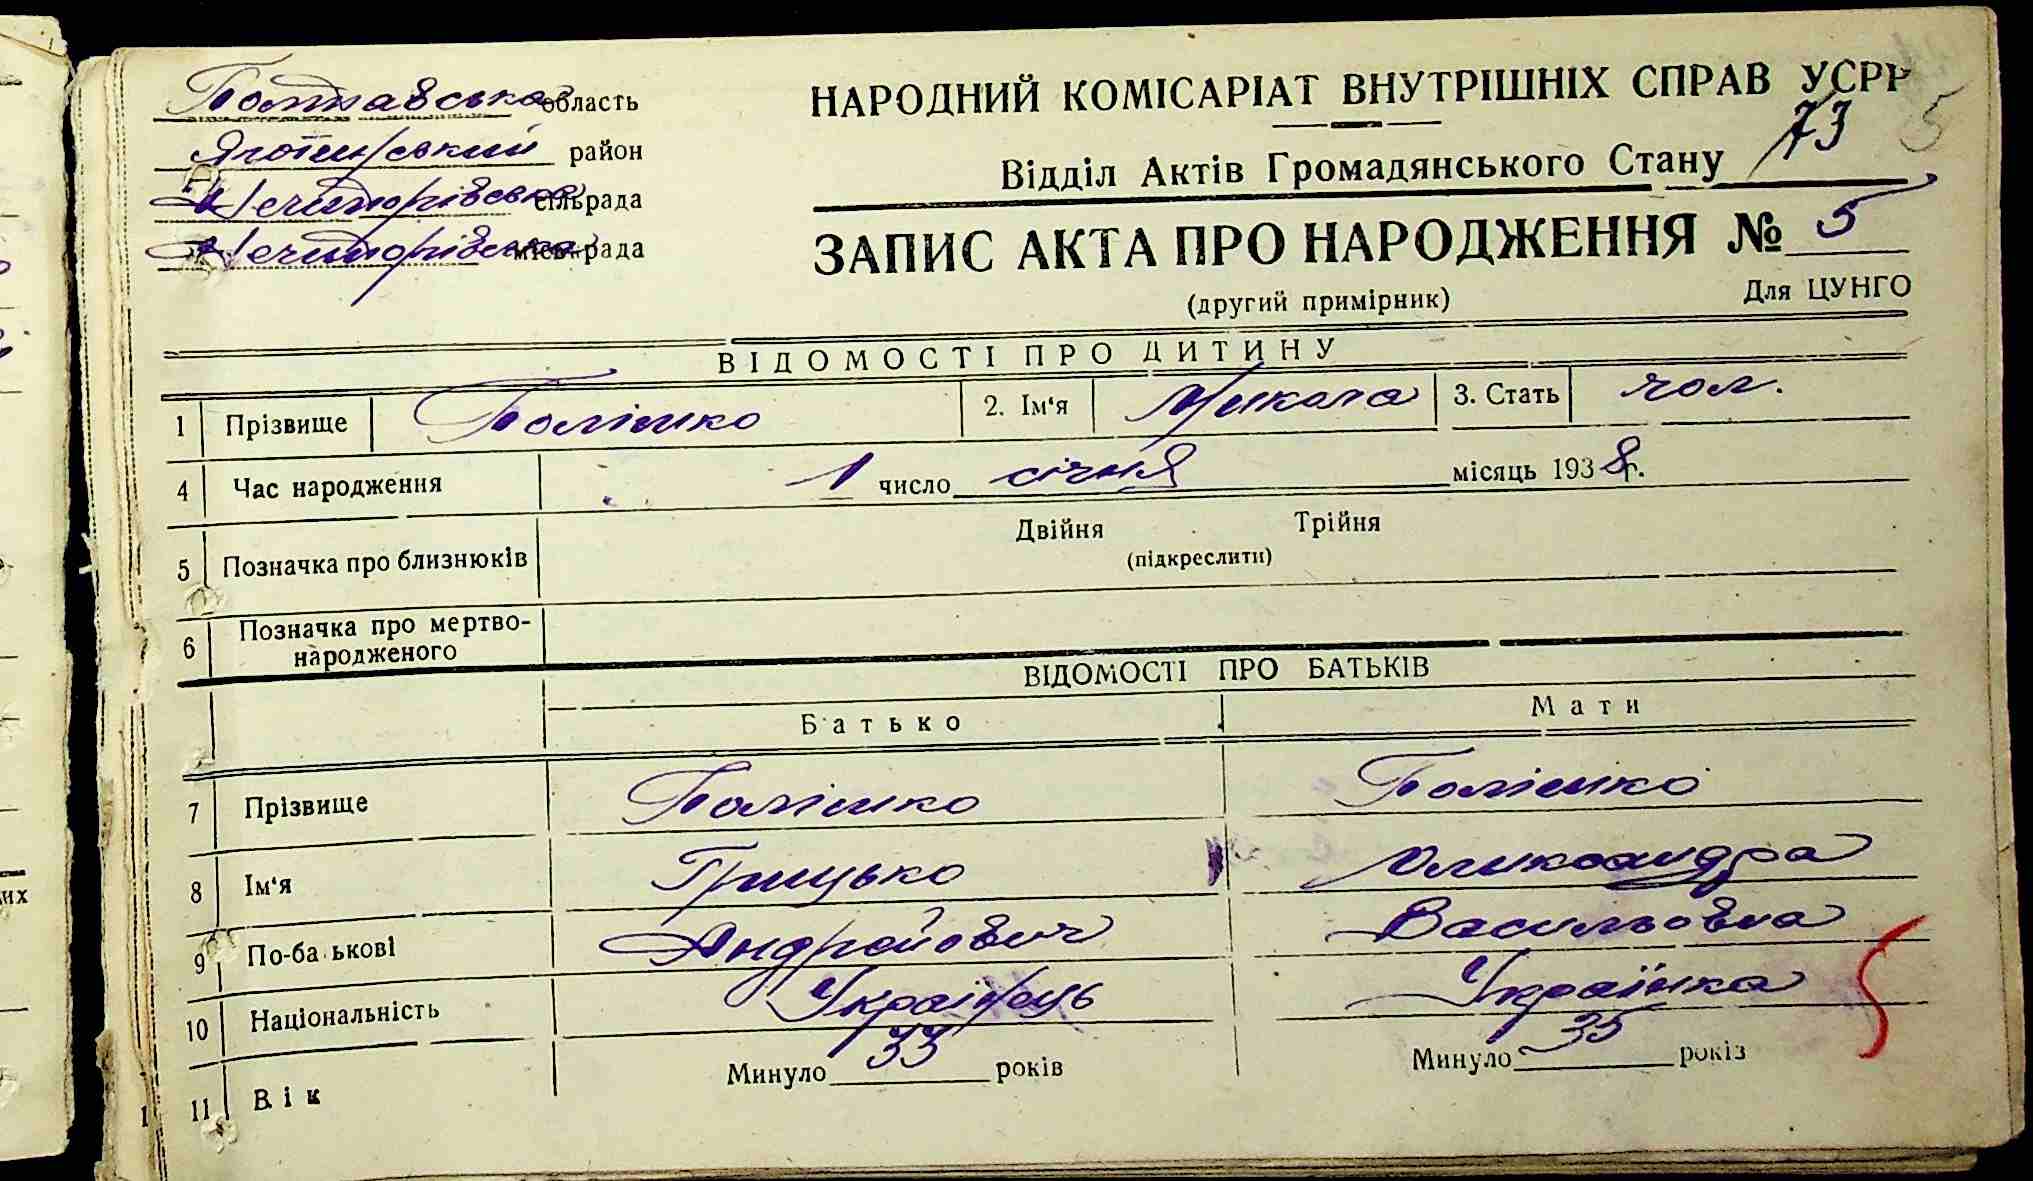 Полтавська область
НАРОДНИЙ КОМІСАРІАТ ВНУТРІШНІХ СПРАВ УСРР
Яготинський район
Відділ Актів Громадянського Стану 73 5
Нечипорівська сільрада
Нечипорівська міськрада
ЗАПИС АКТА ПРО НАРОДЖЕННЯ № 5
(другий примірник) Для ЦУНГО
ВІДОМОСТІ ПРО ДИТИНУ
1 Прізвище Полішко 2. Ім'я Микола 3. Стать чол.
4 Час народження 1 число січня місяць 1938 г.
5 Позначка про близнюків Двійня Трійня
(підкреслити)
6 Позначка про мертво-
народженого
ВІДОМОСТІ ПРО БАТЬКІВ
Батько Мати
7 Прізвище Полішко Полішко
8 Ім'я Грицько Олександра
9 По-ба ькові Андройович Васильовна
10 Національність Українець Українка
11 Вік Минуло 33 років Минуло 35 років